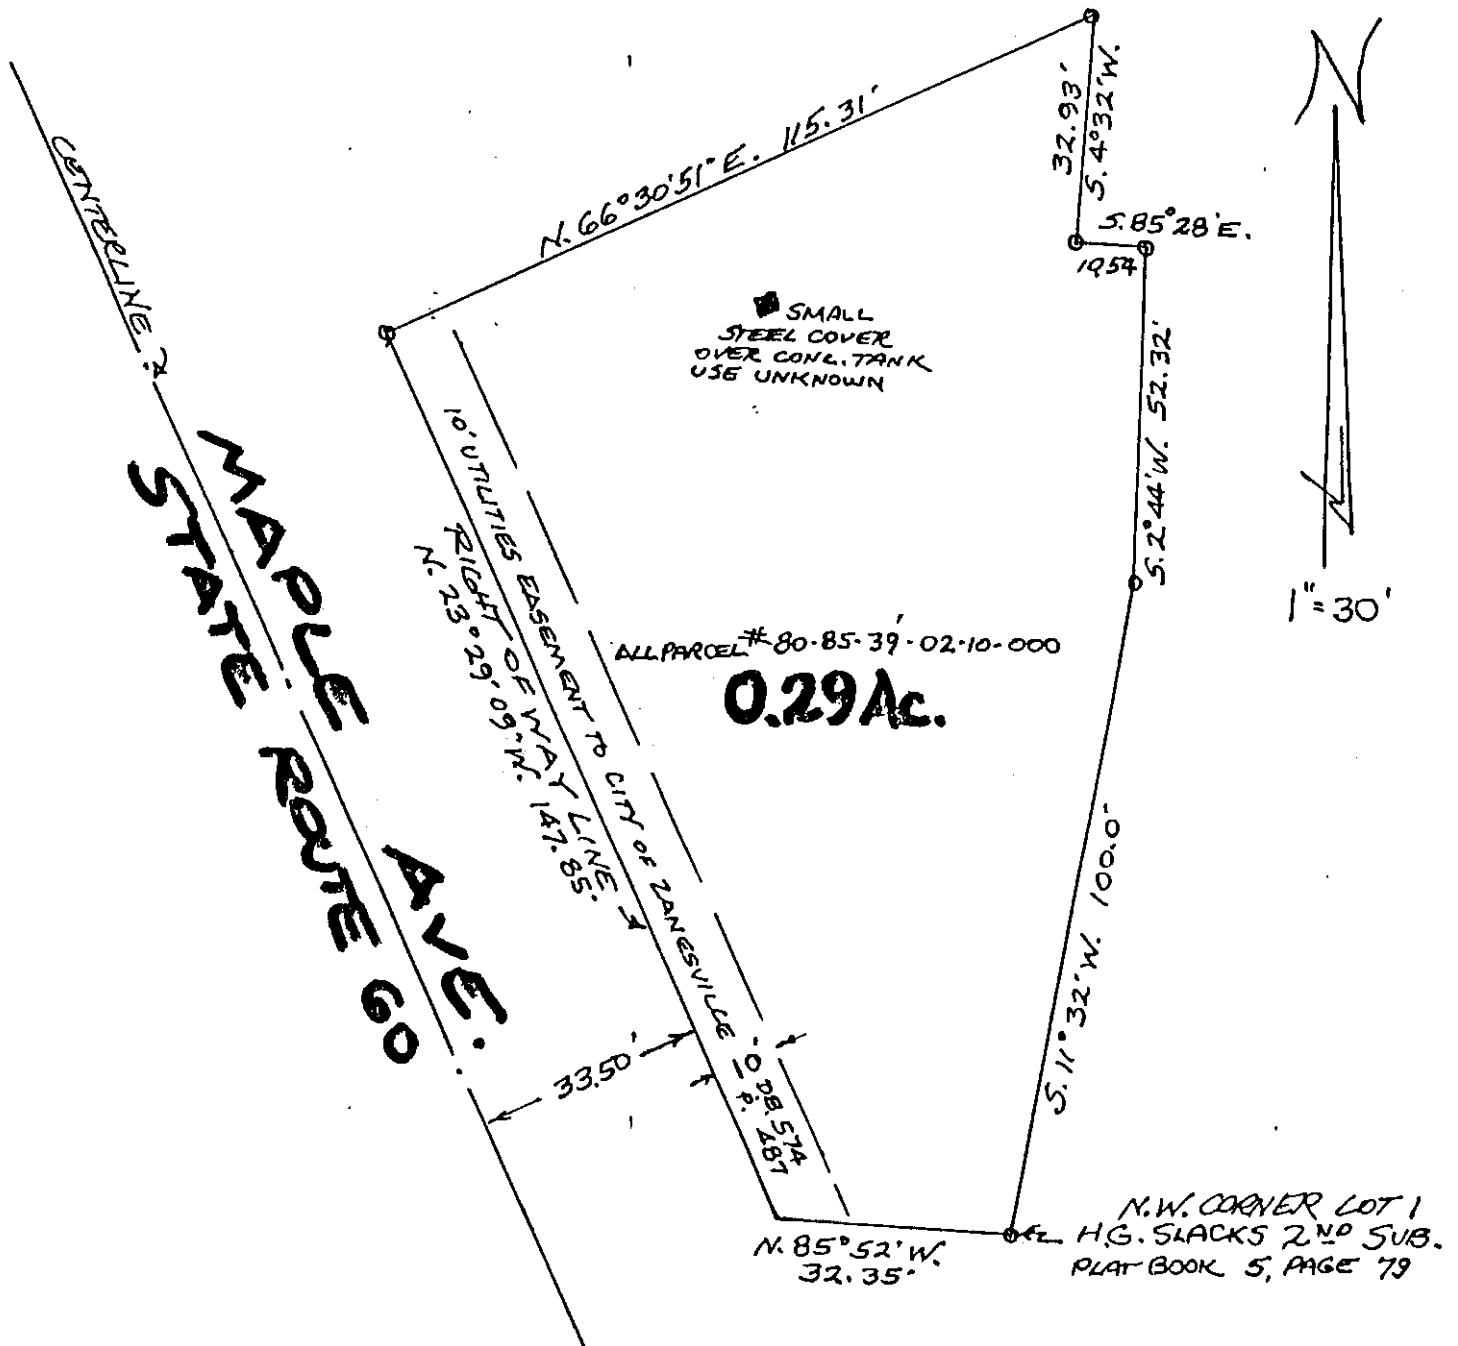 N
1"=30'
CENTERLINE ?
N. 66°30'51" E. 115.31'
32.93'
S. 4°32' W.
S. 85°28' E.
SMALL
STEEL COVER
OVER CONC. TANK
USE UNKNOWN
S. 2°44' W. 52.32'
MAPLE AVE.
STATE ROUTE 60
10' UTILITIES EASEMENT TO CITY OF ZANESVILLE
D.B. 574
P. 487
RIGHT OF WAY LINE
N. 23°29'09" W. 147.85'
ALL PARCEL # 80-85-39-02-10-000
0.29 Ac.
S. 11°32' W. 100.0'
33.50'
10'
N. 85°52' W.
32.35'
N.W. CORNER LOT 1
H.G. SLACKS 2ND SUB.
PLAT BOOK 5, PAGE 79